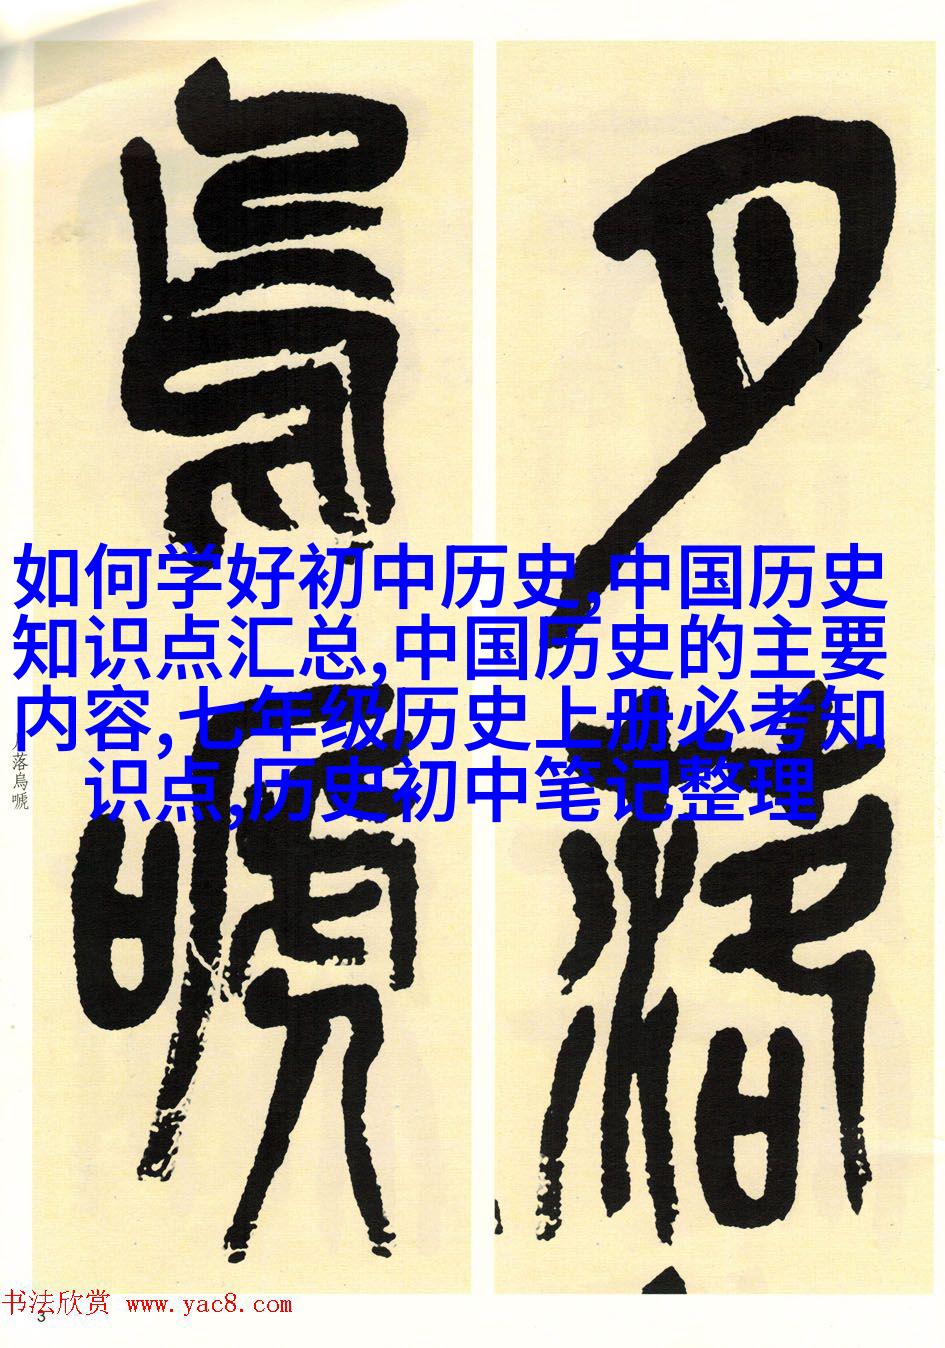 月落
烏嗁
如何学好初中历史,中国历史
知识点汇总,中国历史的主要
内容,七年级历史上册必考知
识点,历史初中笔记整理
落烏嗁
书法欣赏 www.yac8.com
3